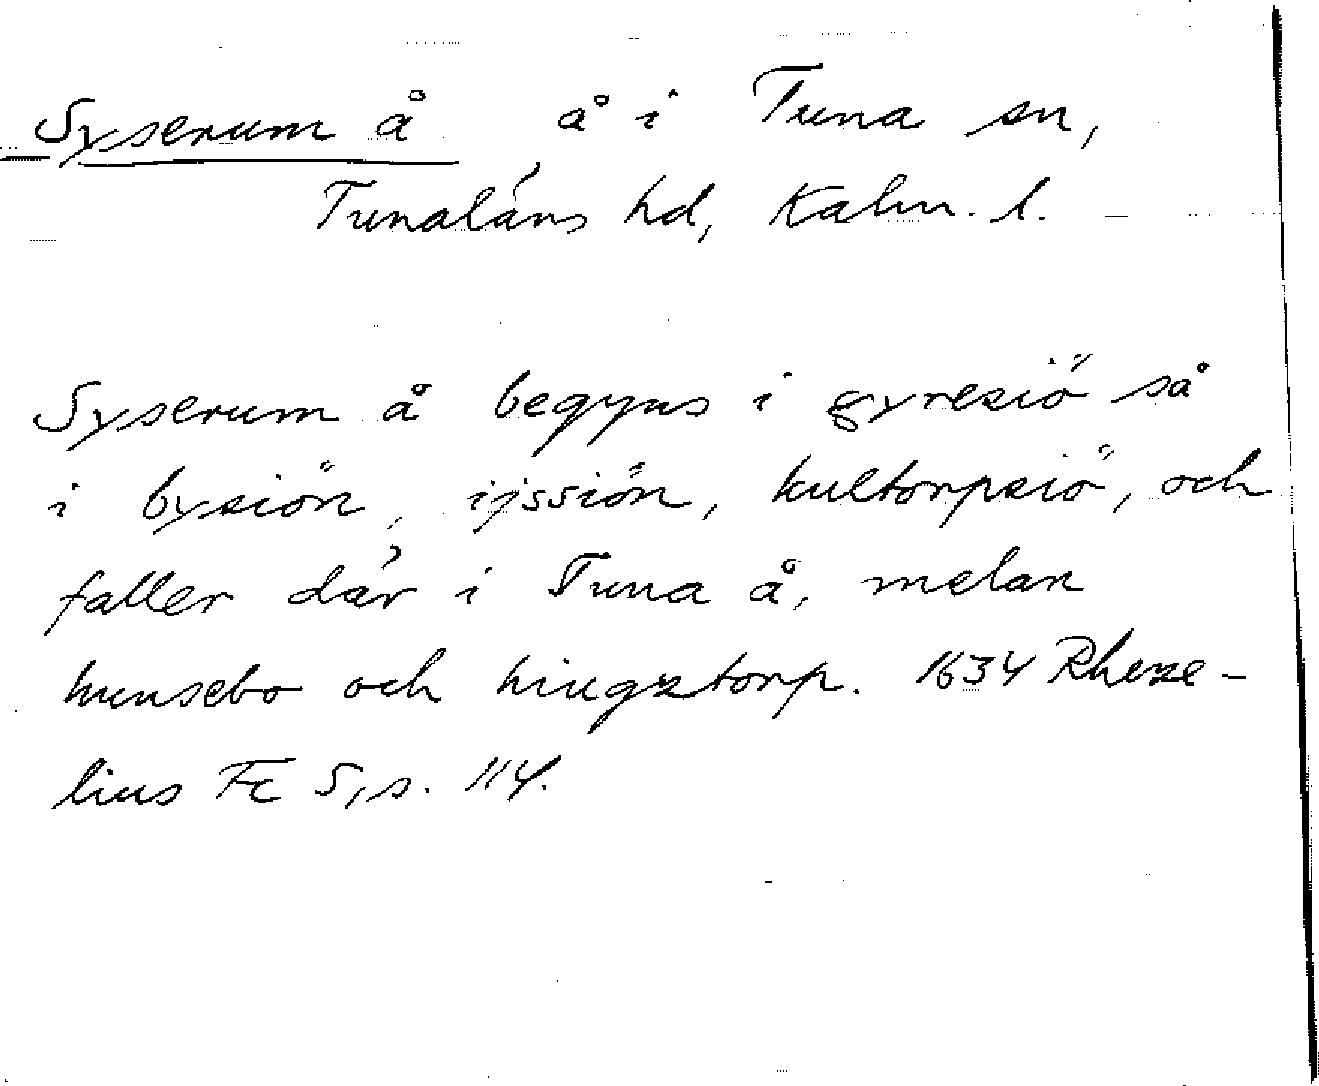 Syserum å å i Tuna sn,
Tunaläns hd, Kalm. l.
Syserum å begyns i gyresiö så
i bysiön, ijssiön, kultorpsiö, och
faller där i Tuna å, melan
hunsebo och hingstorp. 1634 Rheze-
lius Fc 5, s. 114.